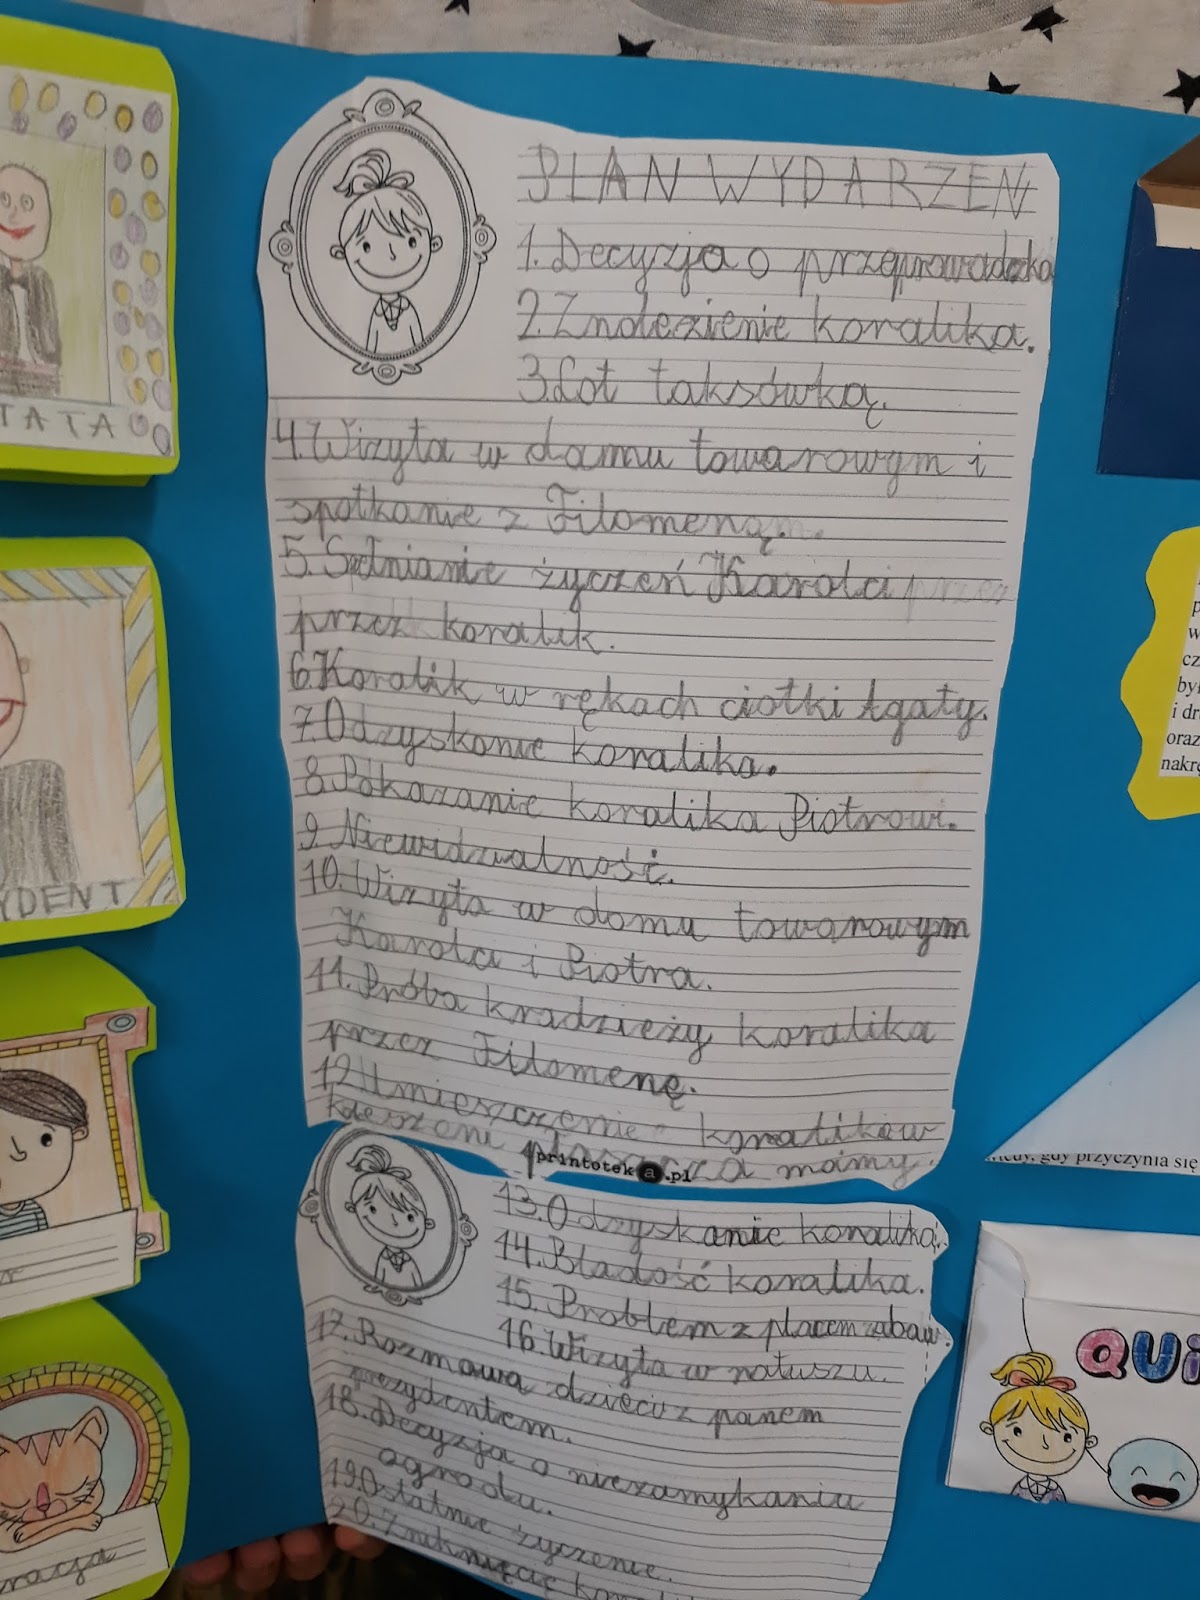 TATA
YDENT
racja
PLAN WYDARZEŃ
1. Decyzja o przeprowadzka
2. Znalezienie koralika.
3. Lot taksówką.
4. Wizyta w domu towarowym i
spotkanie z Filomeną.
5. Spełnianie życzeń Karolci przez
przez koralik.
6. Koralik w rękach ciotki Agaty.
7. Odzyskanie koralika.
8. Pokazanie koralika Piotrowi.
9. Niewidzialność.
10. Wizyta w domu towarowym
Karolci i Piotra.
11. Próba kradzieży koralika
przez Filomenę.
12. Umieszczenie koralików
kieszeni płaszcza mamy.
printoteka.pl
13. Odzyskanie koralika.
14. Bladość koralika.
15. Problem z placem zabaw.
16. Wizyta w ratuszu.
17. Rozmowa dzieci z panem
prezydentem.
18. Decyzja o niezamykaniu
ogrodu.
19. Ostatnie życzenie.
20. Zniknięcie
p
w
cz
był
i dr
oraz
nakrę
gdy przyczynia się
QUI